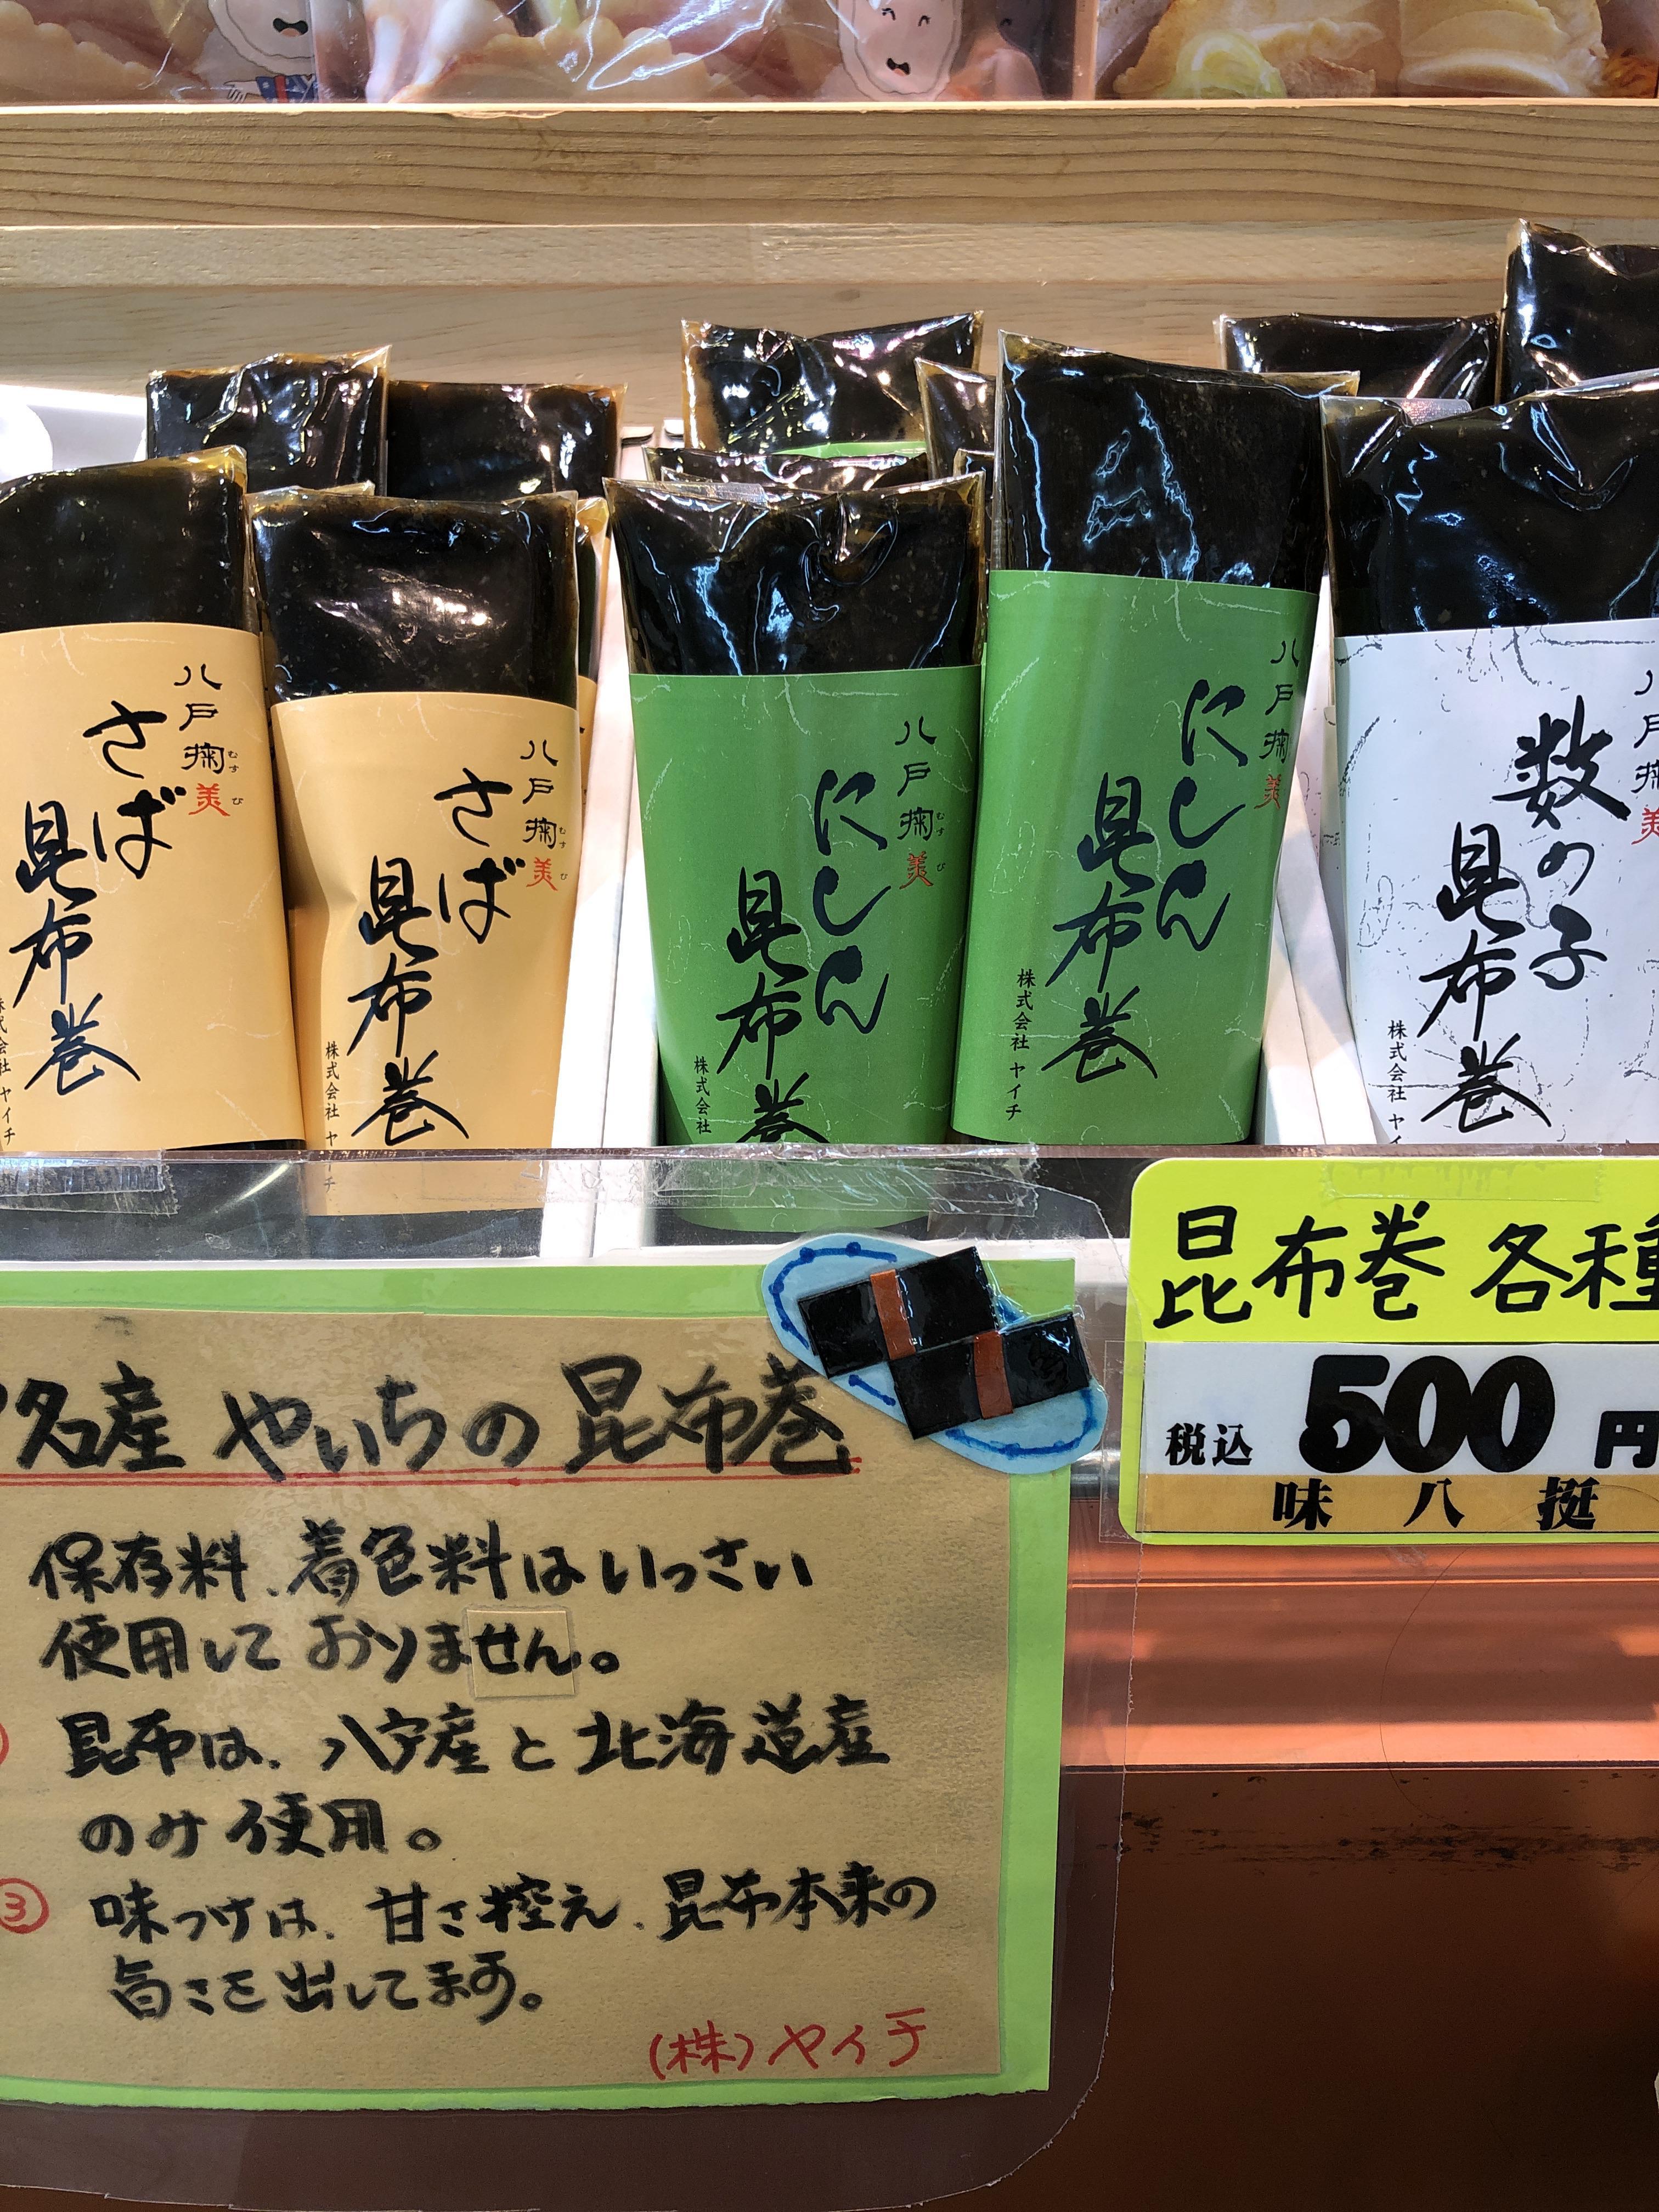 八戸掬美
むすび
さば
昆布巻
株式会社 ヤイチ
八戸掬美
むすび
さば
昆布巻
株式会社 ヤイ
八戸掬美
むすび
にしん
昆布巻
株式会社
八戸掬美
にしん
昆布巻
株式会社 ヤイチ
八戸掬美
数の子
昆布巻
株式会社 ヤイ
昆布巻 各種
税込 500円
味 八 挺
名産 やいちの昆布巻
保存料、着色料はいっさい
使用しておりません。
昆布は、八戸産と北海道産
のみ使用。
③ 味つけは、甘さ控え、昆布本来の
旨さを出してます。
(株)ヤイチ